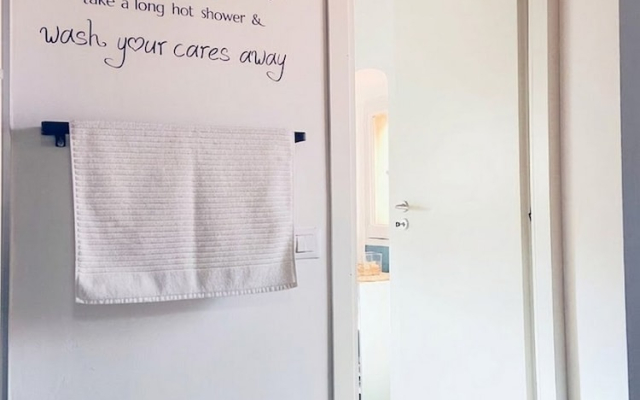 take a long hot shower &
wash your cares away